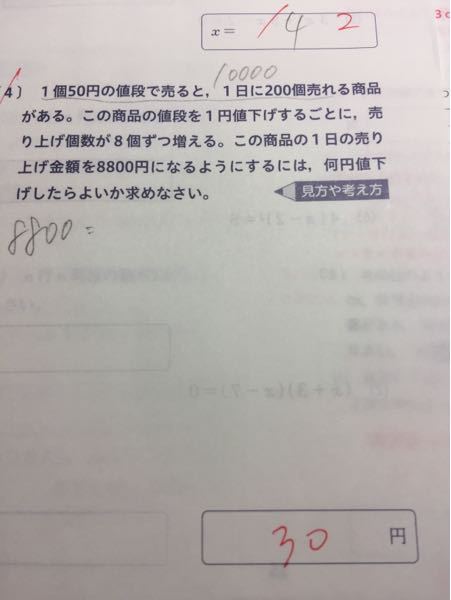 x= 14 2
4〕 1個50円の値段で売ると，1日に200個売れる商品
10000
がある。この商品の値段を1円値下げするごとに，売
り上げ個数が8個ずつ増える。この商品の1日の売り
上げ金額を8800円になるようにするには，何円値下
げしたらよいか求めなさい。
見方や考え方
8800=
(x+3)(x-7)=0
30 円